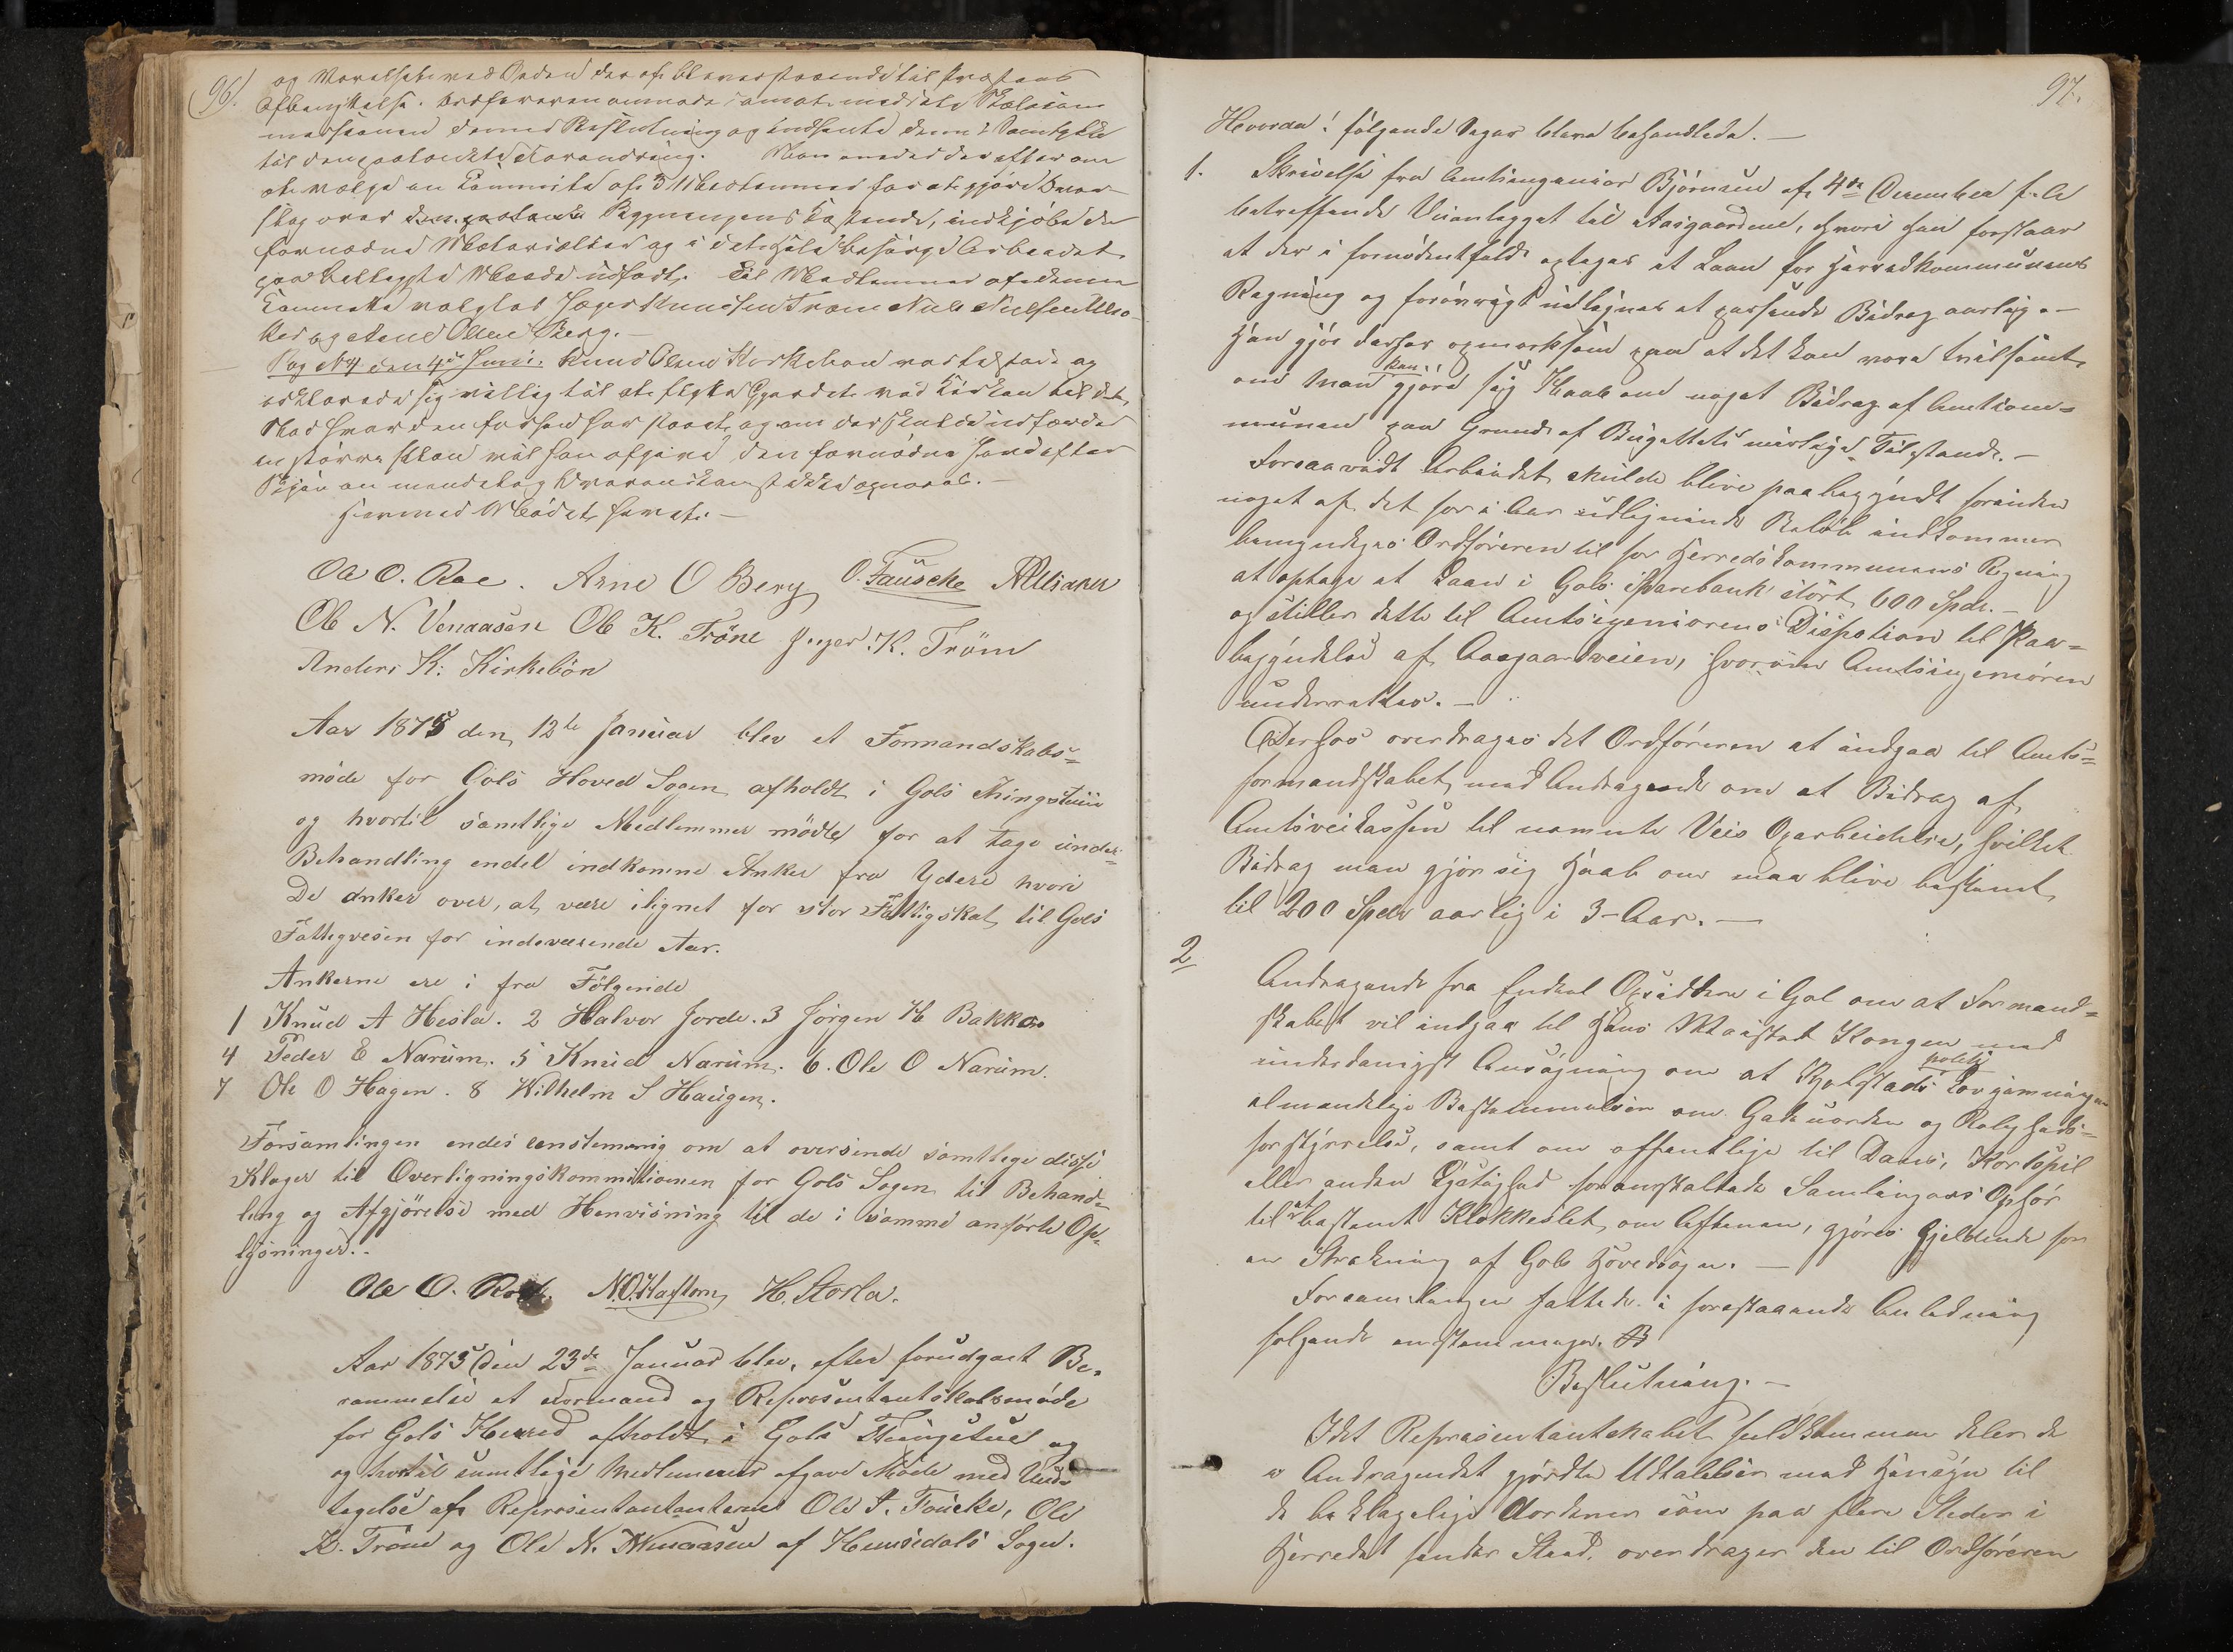 96.
og Værelset ved Siden der af bliver staaende til Præstens
Afbenyttelse. Ordføreren anmodes om at meddele Skolecom-
missionen denne Beslutning og indhente dennes Samtykke
til den paatænkte Forandring. Man enedes derefter om
at vælge en Committe af 3 Medlemmer for at gjøre Over-
slag over Bygningens Kostende, indkjøbe de
fornødne Materialier og i det Hele besørge Arbeidet
paa Maade udført. Til Medlemmer af denne
Committe valgtes Jeger Knudsen Trøm Nils Nielsen
og Arne Olsen Berg.
Sag No 4 den 4de Juni. Knud Olsen Kirkebøn var tilstede og
erklærede sig villig til at flytte Gjerdet ved Kirken til det
Sted hvor den forhen har staaet, og om der skulde udfordres
en større vil han afgive den fornødne Jord efter
Skjøn af mænd dersom Overenskomst ikke opnaaes.
Hermed Mødet hævet.
Ole O. Roe. Arne O Berg O. Fauske
Ole N. Venaasen Ole K. Tröne Jeger K. Tröm
Anders K: Kirkebön
Aar 1875 den 12te Januar blev et Formandskabs-
møde for Gols Hoved Sogen afholdt i Gols Thingstue
og hvortil samtlige Medlemmer mödte for at tage under
Behandling endel indkomne Anker fra Ydere hvori
De anker over, at være ilignet for stor Fattigskat til Gols
Fattigvesen for indeværende Aar.
Ankerne ere i fra Fölgende
1 Knud A Hesla. 2 Halvor Jorde. 3 Jörgen H Bakken
4 Peder E Narum. 5 Knud Narum. 6. Ole O Narum.
7 Ole O Hagen. 8 Wilhelm S Haugen.
Forsamlingen endes eenstemmig om at oversende samtlige disse
Klager til Overligningskommitionen for Gols Sogen til Behand-
ling og Afgjörelse med Henvisning til de i samme anförte Op-
lysninger.
Ole O. Roe. N.O. Kaston H. Storla.
Aar 1875 den 23de Januar blev, efter forudgaat Be-
rammelse et Formand og Repræsentantskabsmöde
for Gols Herred afholdt i Gols Thingstue og
og hvortil samtlige Medlemmer afgave Möde med Und-
tagelse af Repræsentantanterne Ole A. Faucke, Ole
K. Tröne og Ole N. Wenaasen af Hemsedals Sogn.
97.
Hvorda! følgende Sager bleve behandlede.
1. Skrivelse fra Amtsingeniør Bjørnsen af 4de December f. A
betreffende Veianlægget til Aasgaardene, hvori han foreslaar
at der i fornødentfald optages et Laan for Herredkommunens
Regning og forøvrigt udlignes et passende Bidrag aarlig.
Han gjør derhos opmærksom paa at det kan være tvilsomt
om Man kan gjøre sig Haab om noget Bidrag af Amtskom-
munen paa Grund af Budgettets Tilstand.
Forsaavidt Arbeidet skulde blive paabegyndt forinden
noget af det for i Aar udlignende Beløb indkommer
bemyndiges Ordføreren til for Herredskommunens Regning
at optage et Laan i Gols Sparebank stort 600 Spdr.
og stiller dette til Amtsigeniørens Dispotion til Paa-
begyndelse af Aasgaardveien, hvorom Amtsingeniøren
underrettes.
Derhos overdrages det Ordføreren at indgaa til Amts-
formandskabet med Andragende om et Bidrag af
Amtsveikassen til nævnte Veis Oparbeidelse, hvilket
Bidrag man gjør sig Haab om maa blive bestemt
til 200 Spdr aarlig i 3 Aar.
2 Andragende fra Endeel Opsiddere i Gol om at Formand-
skabet vil indgaa til Hans Majestæt Kongen med
underdanigst Ansøgning om at Kjøbstads politi Lovgivningens
almindelige Bestemmelser om Gadeuorden og Roligheds-
forstyrrelse, samt om offentlige til Dands, Kortspil
eller anden Lystighed foranstaltede Samlingers Ophør
til et bestemt Klokkeslet om Aftenen, gjøres Gjeldende for
en Strækning af Gols Hovedsogn.
Forsamlingen fattede i forestaaende Anledning
følgende enstemmige. B
Beslutning.
Idet Repræsentantskabet fuldkommen deler de
i Andragendet gjordte Udtalelser med Hensyn til
de beklagelige Uordener som paa flere Steder i
Herredet finder Sted. overdrager den til Ordføreren